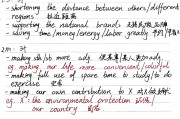 - shortening the distance between others/different
regions 拉近距离
- supporting the national brands 支持
- saving time/money/energy/labor greatly 节约
2m: 对
- making sb/sb more adj.
eg. making our life more convenient/colorful
- making full use of spare time to study/to do
exercise
- making our own contribution to X 为X做贡献
eg. X: the environmental protection 环保
our country